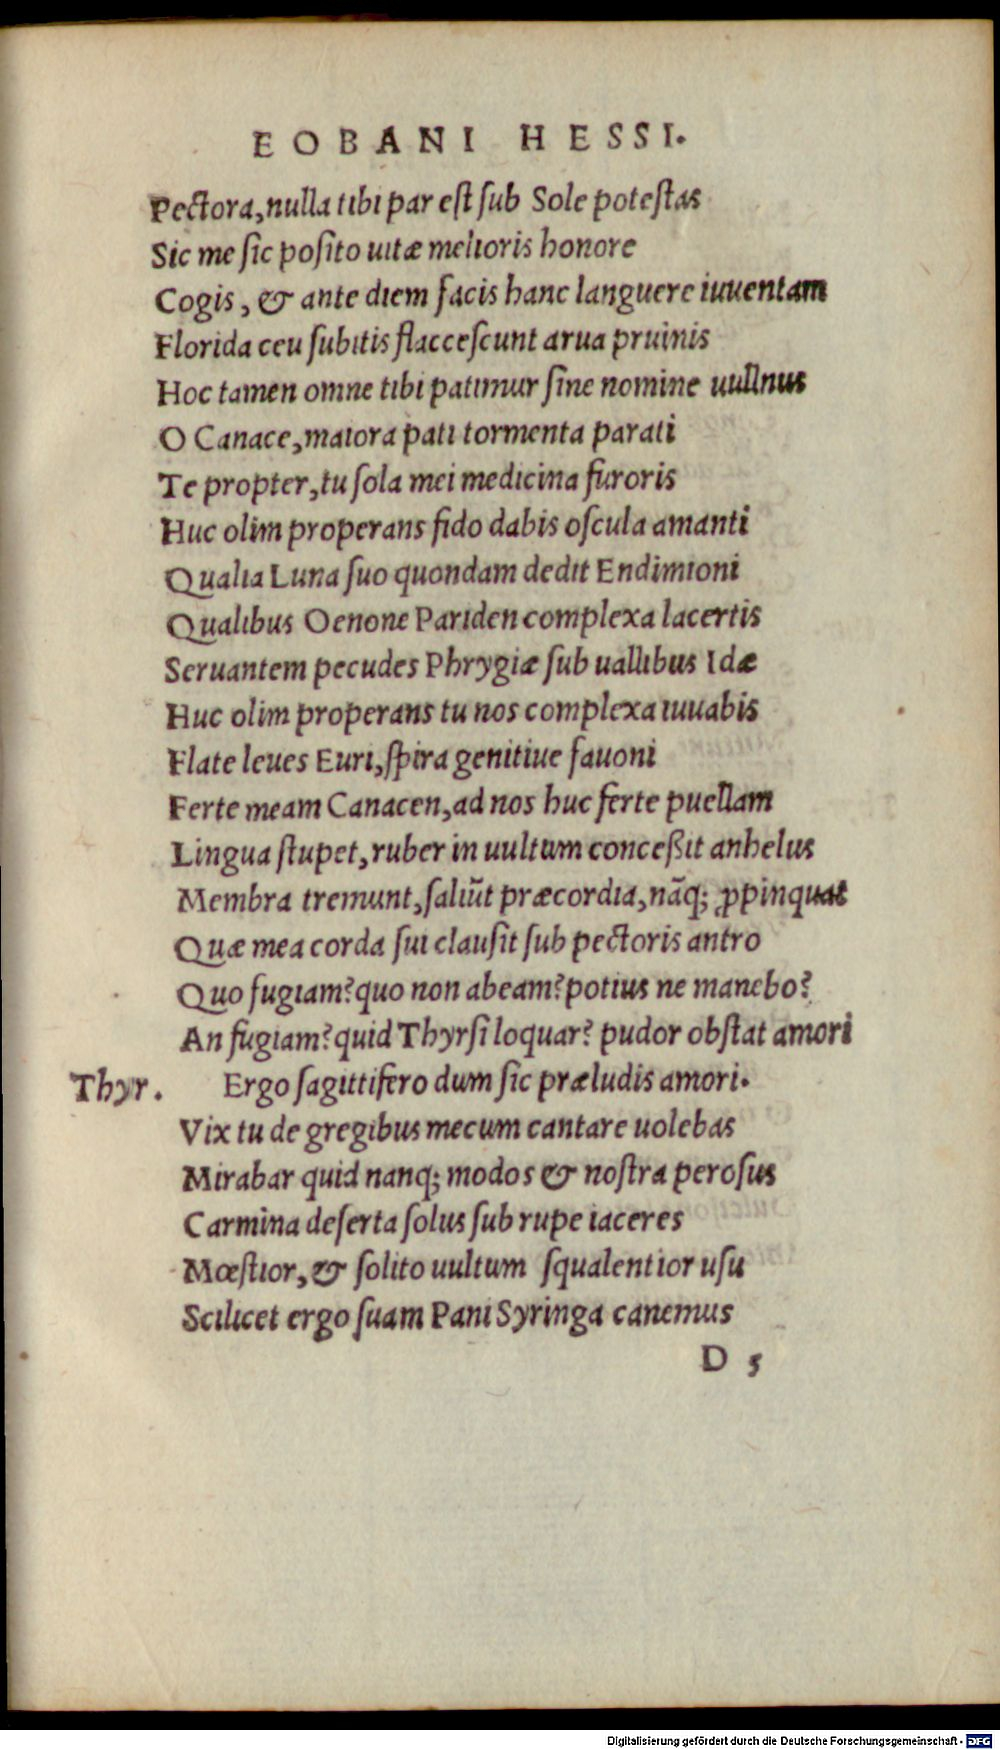 EOBANI HESSI.
Pectora, nulla tibi par est sub Sole potestas
Sic me sic posito uitæ melioris honore
Cogis, & ante diem facis hanc languere iuuentam
Florida ceu subitis flaccescunt arua pruinis
Hoc tamen omne tibi patimur sine nomine uullnus
O Canace, maiora pati tormenta parati
Te propter, tu sola mei medicina furoris
Huc olim properans fido dabis oscula amanti
Qualia Luna suo quondam dedit Endimioni
Qualibus Oenone Pariden complexa lacertis
Seruantem pecudes Phrygiæ sub uallibus Idæ
Huc olim properans tu nos complexa iuuabis
Flate leues Euri, spira genitiue fauoni
Ferte meam Canacen, ad nos huc ferte puellam
Lingua stupet, ruber in uultum conceßit anhelus
Membra tremunt, saliũt præcordia, nãq; ꝓpinquat
Quæ mea corda sui clausit sub pectoris antro
Quo fugiam? quo non abeam? potius ne manebo?
An fugiam? quid Thyrsi loquar? pudor obstat amori
Thyr. Ergo sagittifero dum sic præludis amori.
Vix tu de gregibus mecum cantare uolebas
Mirabar quid nanq; modos & nostra perosus
Carmina deserta solus sub rupe iaceres
Mœstior, & solito uultum squalentior usu
Scilicet ergo suam Pani Syringa canemus
D 5
Digitalisierung gefördert durch die Deutsche Forschungsgemeinschaft - DFG